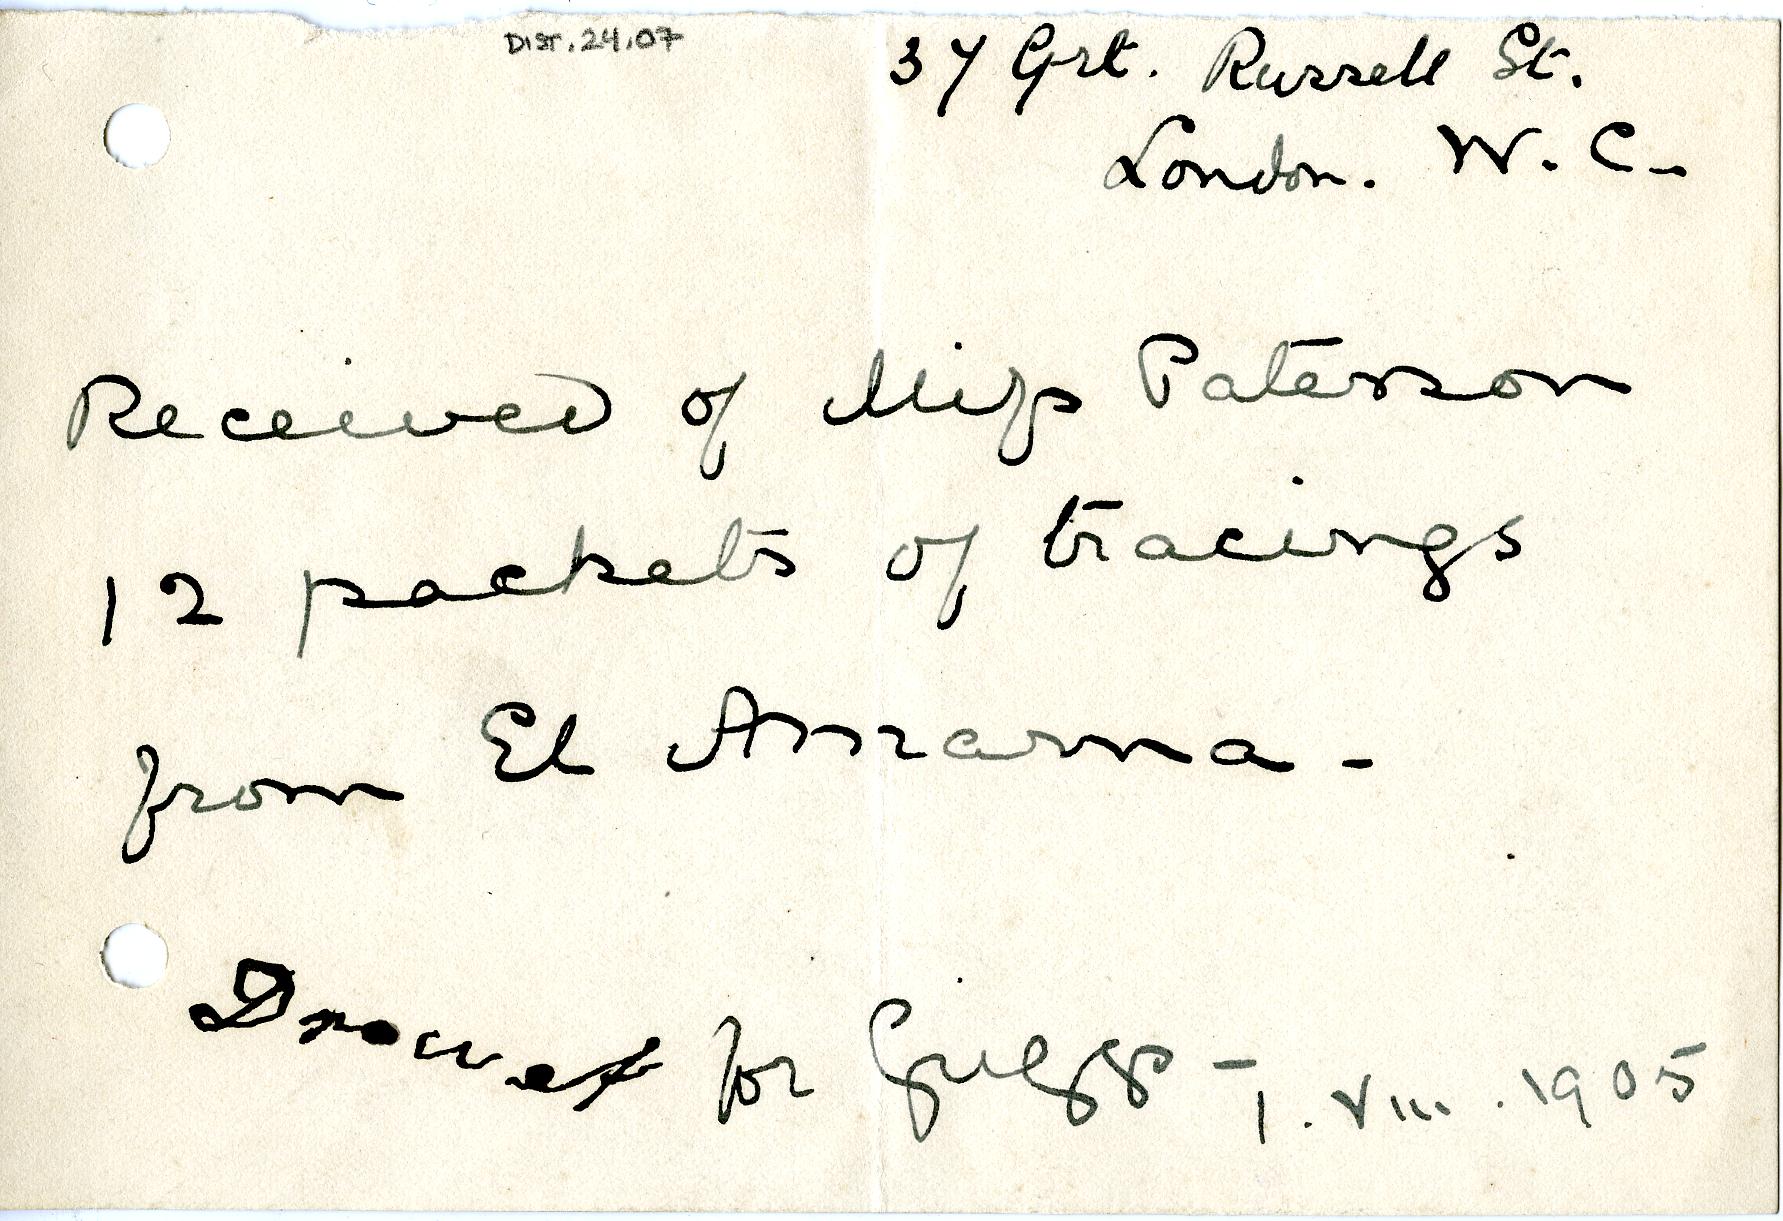 DIST.24.07
37 Grt. Russell St.
London. W.C.
Received of Miss Paterson
12 packets of tracings
from El Amarna -
for Griggs - 1. VIII. 1905